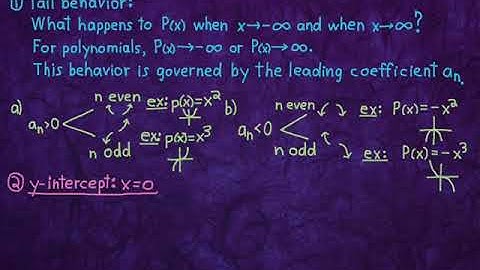 ① Tail behavior:
What happens to P(x) when x→-∞ and when x→∞?
For polynomials, P(x)→-∞ or P(x)→∞.
This behavior is governed by the leading coefficient aₙ.
a) aₙ>0
n even ex: p(x)=x²
n odd ex: p(x)=x³
b) aₙ<0
n even ex: P(x)=-x²
n odd ex: P(x)=-x³
② y-intercept: x=0